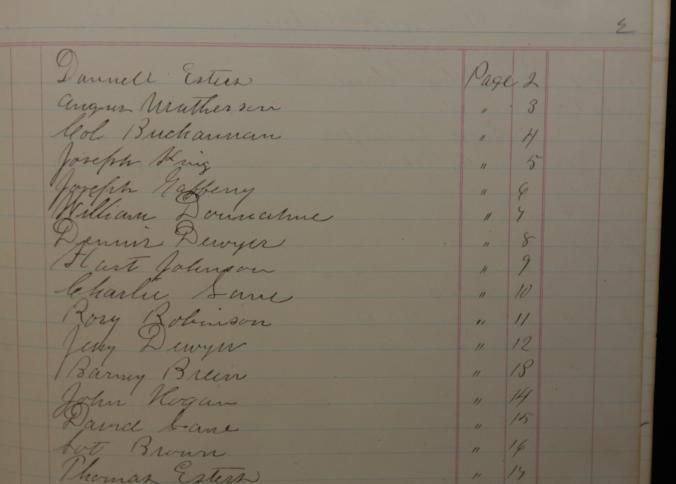 Donnell Esters Page 2
Angus Matherson " 3
Col Buchannan " 4
Joseph King " 5
Joseph Gafferry " 6
William Donnahue " 7
Dennis Dewyer " 8
Hart Johnson " 9
Charlie Lane " 10
Rory Robinson " 11
Jerry Dewyer " 12
Barney Breen " 13
John Hogan " 14
David Lane " 15
Lot Brown " 16
Thomas Esters " 17